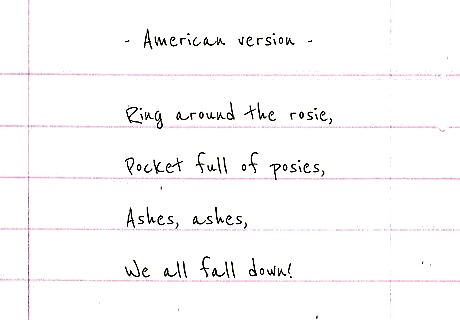 - American version -
Ring around the rosie,
Pocket full of posies,
Ashes, ashes,
We all fall down!